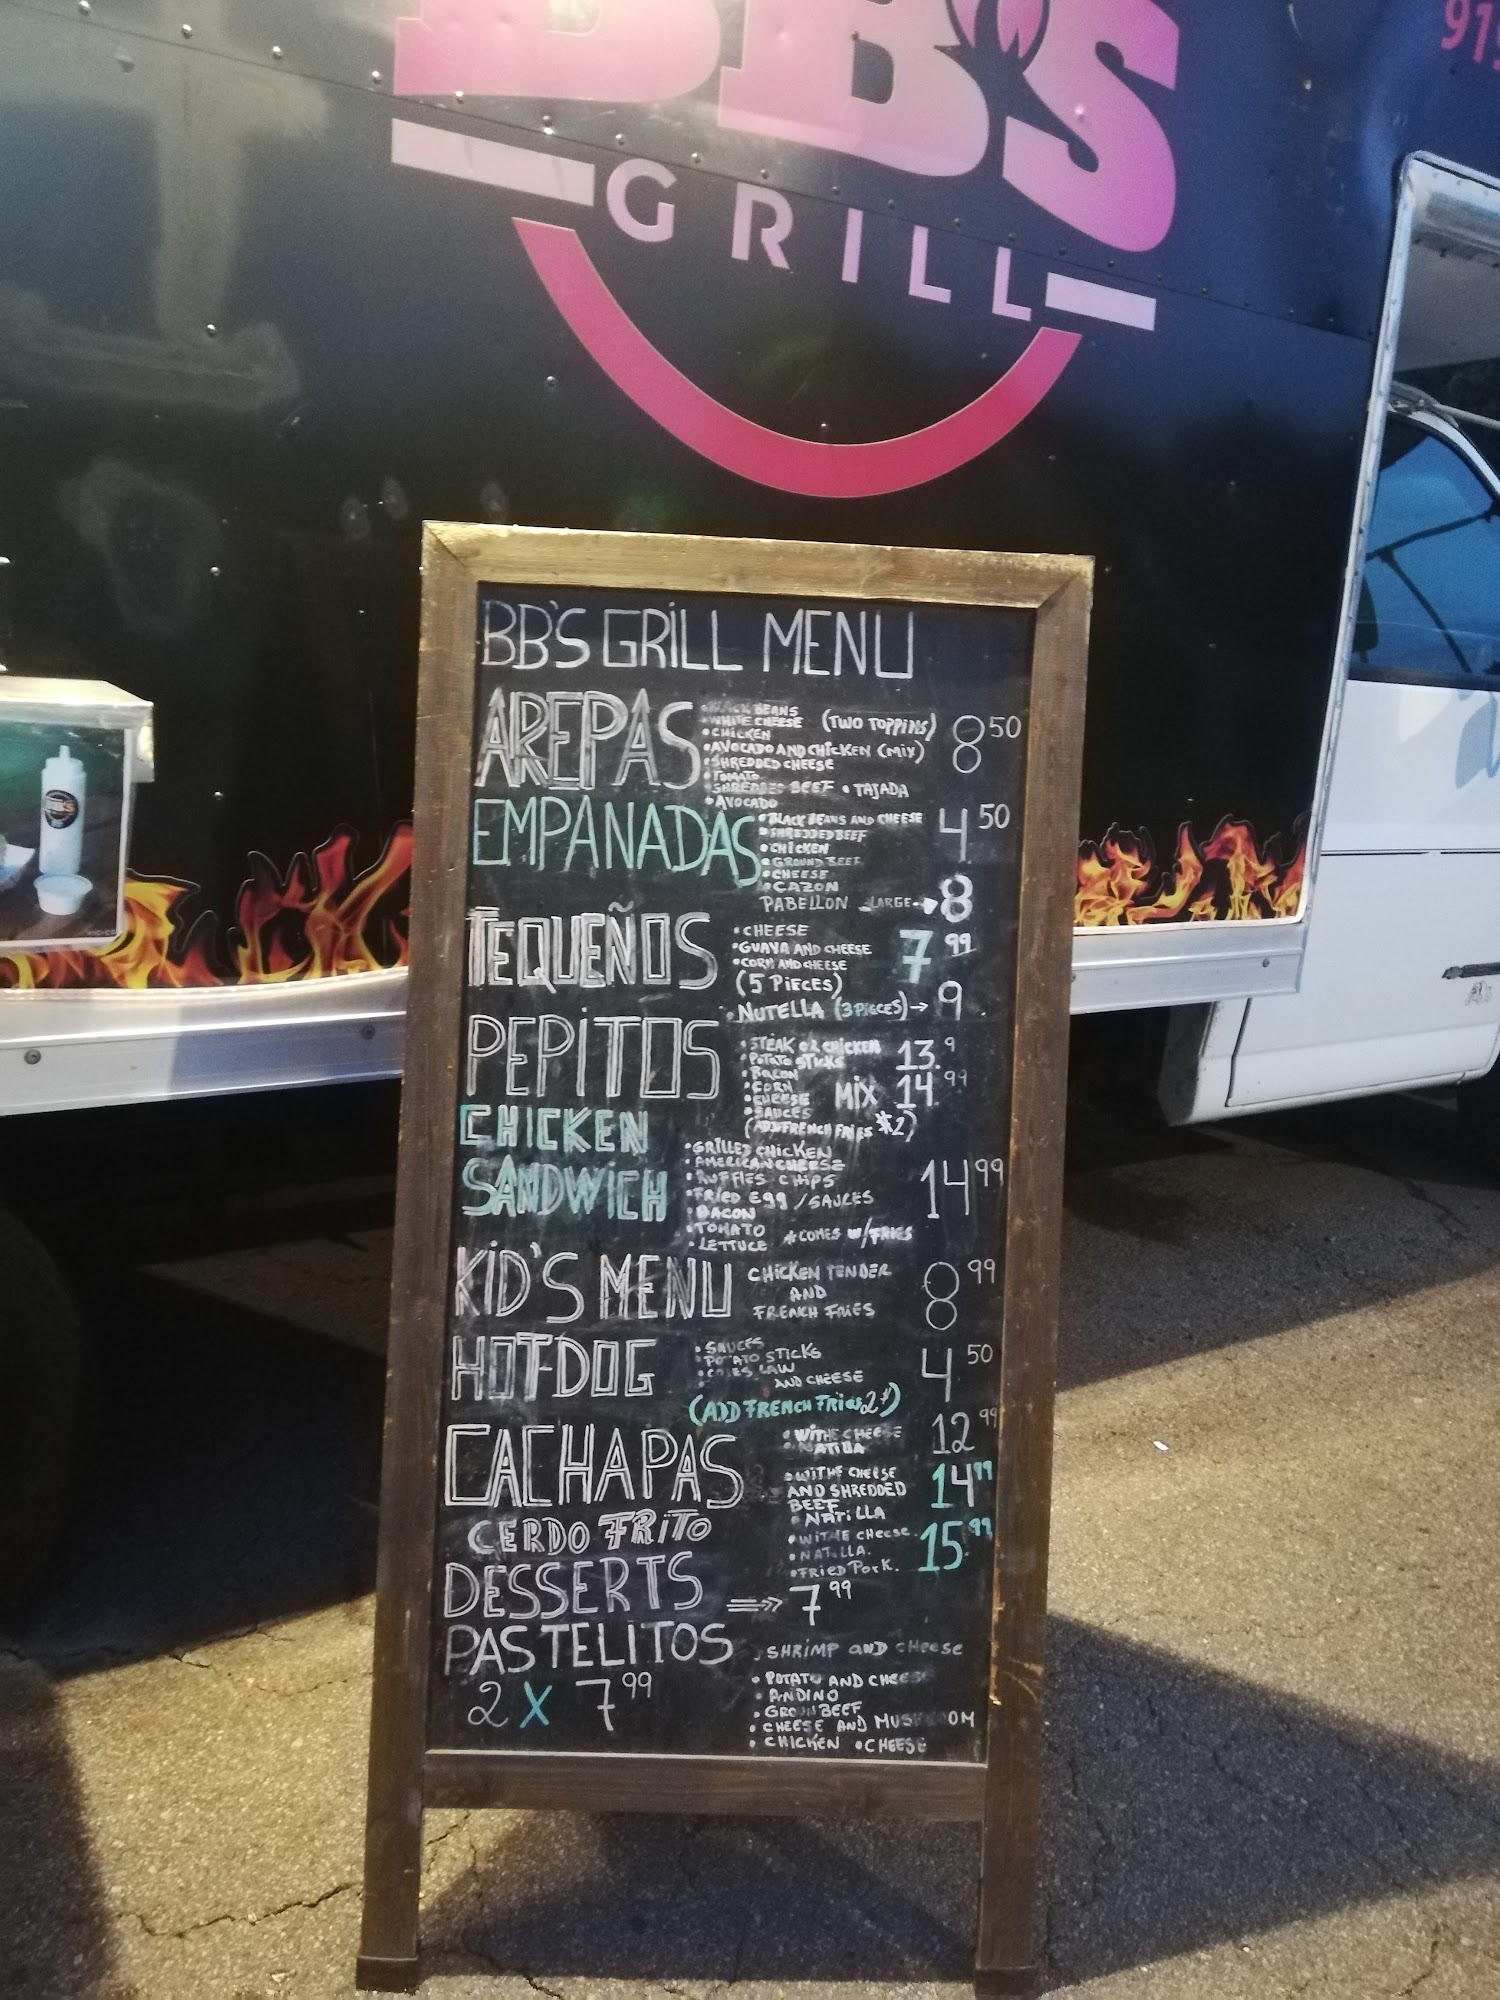 BB'S
GRILL
919
BB'S GRILL MENU
AREPAS
• BLACK BEANS
• WHITE CHEESE (TWO TOPPINS) 8 50
• CHICKEN
• AVOCADO AND CHICKEN (MIX)
• SHREDDED CHEESE
• TOMATO
• SHREDDED BEEF • TAJADA
• AVOCADO
EMPANADAS
• BLACK BEANS AND CHEESE 4 50
• SHREDDED BEEF
• CHICKEN
• GROUND BEEF
• CHEESE
• CAZON
PABELLON LARGE → 8
TEQUEÑOS
• CHEESE
• GUAVA AND CHEESE 7 99
• CORN AND CHEESE
(5 PIECES)
• NUTELLA (3 PIECES) → 9
PEPITOS
• STEAK OR CHICKEN 13. 9
• POTATO STICKS
• BACON
• CORN MIX 14. 99
• CHEESE
• SAUCES
(ADD FRENCH FRIES $2)
CHICKEN
SANDWICH
• GRILLED CHICKEN
• AMERICAN CHEESE
• RUFFLES CHIPS 14 99
• FRIED EGG / SAUCES
• BACON
• TOMATO *COMES W/FRIES
• LETTUCE
KID'S MENU CHICKEN TENDER 8 99
AND
FRENCH FRIES
HOTDOG
• SAUCES
• POTATO STICKS 4 50
• COLES LAW
AND CHEESE
(ADD FRENCH FRIES 2$)
CACHAPAS
• WITHE CHEESE 12 99
• NATILLA
• WITHE CHEESE 14 99
AND SHREDDED
BEEF
• NATILLA
CERDO FRITO
• WITHE CHEESE 15 99
• NATILLA.
• FRIED PORK.
DESSERTS ⇒ 7 99
PASTELITOS
2 X 7 99
SHRIMP AND CHEESE
• POTATO AND CHEESE
• ANDINO
• GROUN BEEF
• CHEESE AND MUSHROOM
• CHICKEN • CHEESE